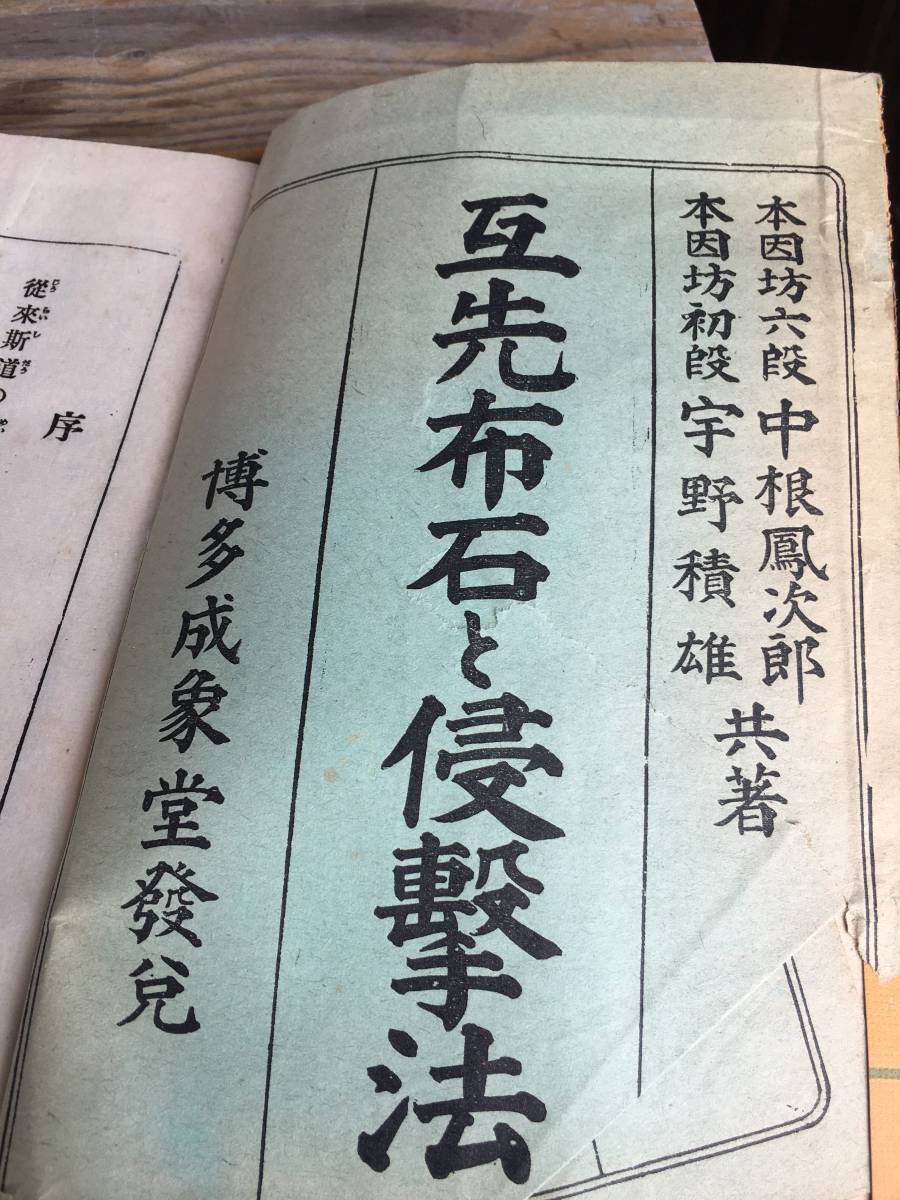 本因坊六段 中根鳳次郎
本因坊初段 宇野積雄
共著
互先布石と侵擊法
博多成象堂發兌
序
從來斯道の